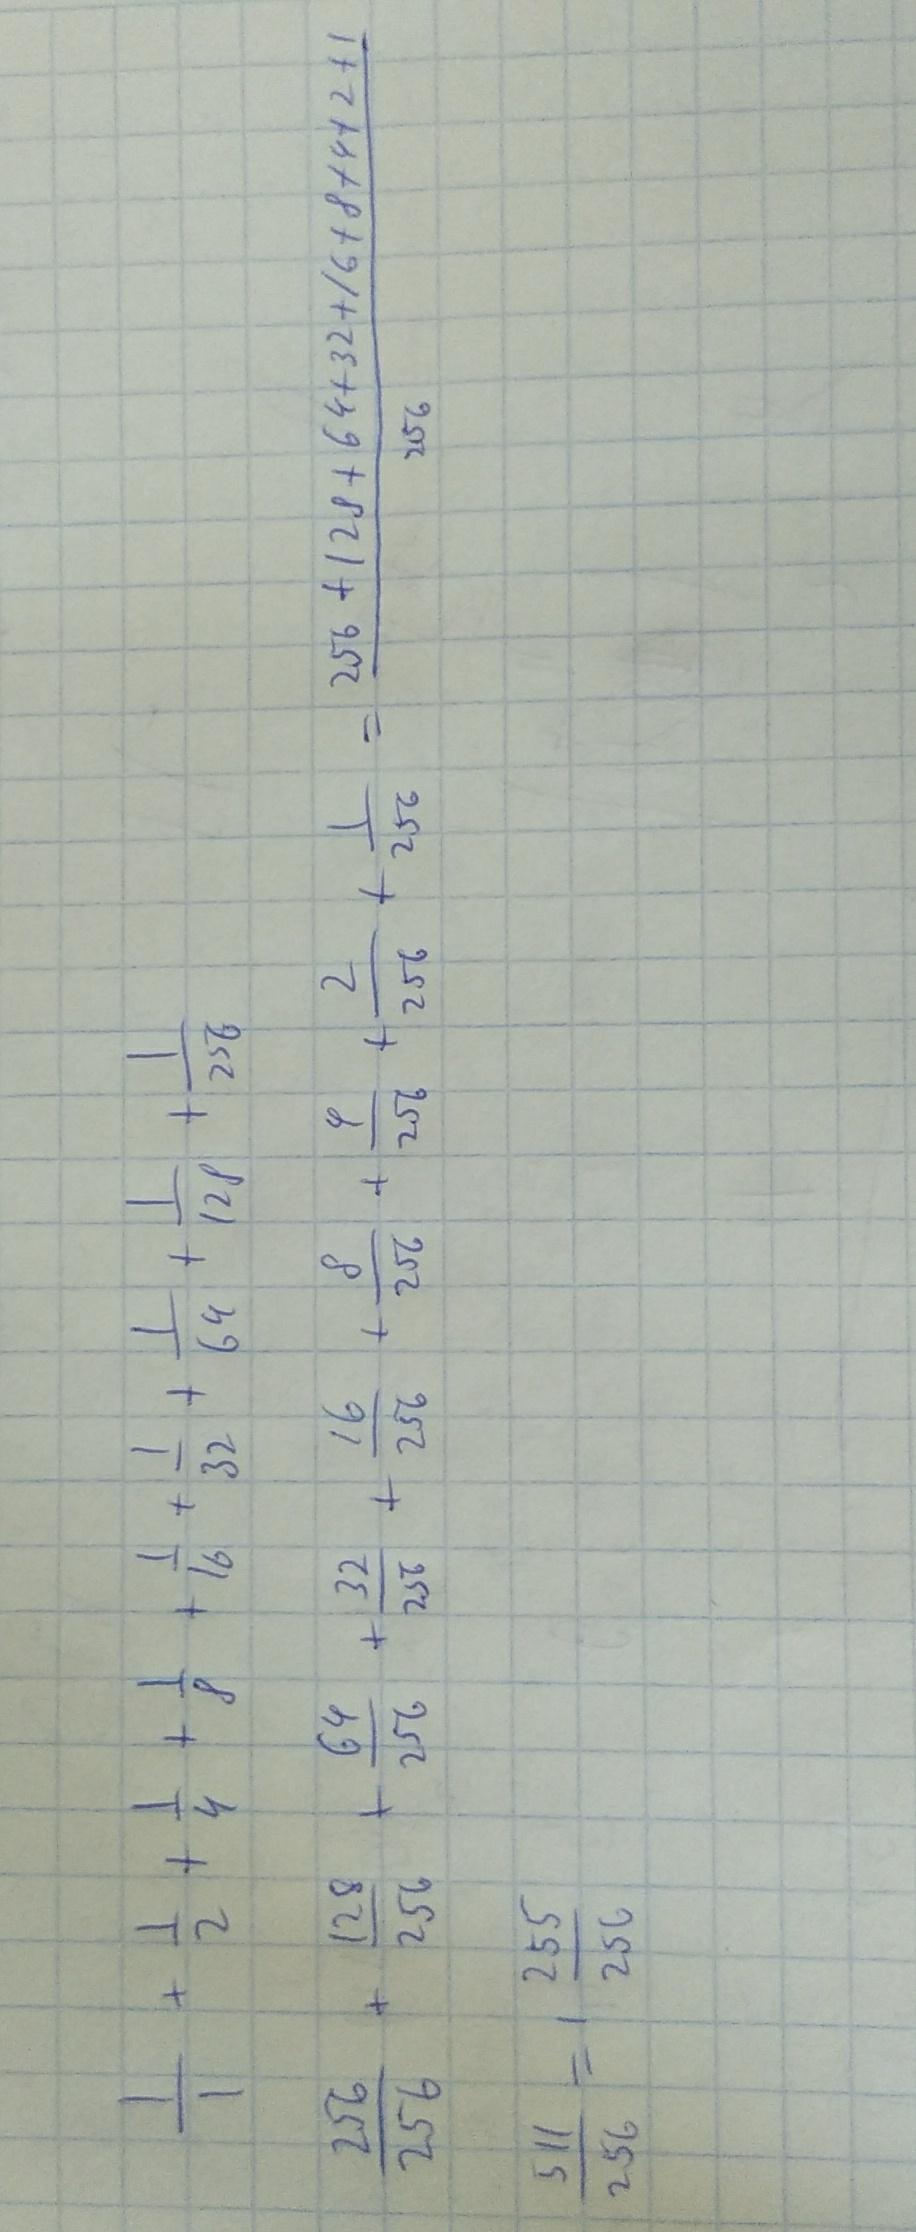 1/1 + 1/2 + 1/4 + 1/8 + 1/16 + 1/32 + 1/64 + 1/128 + 1/256
256/256 + 128/256 + 64/256 + 32/256 + 16/256 + 8/256 + 4/256 + 2/256 + 1/256 = (256+128+64+32+16+8+4+2+1)/256
511/256 = 1 255/256